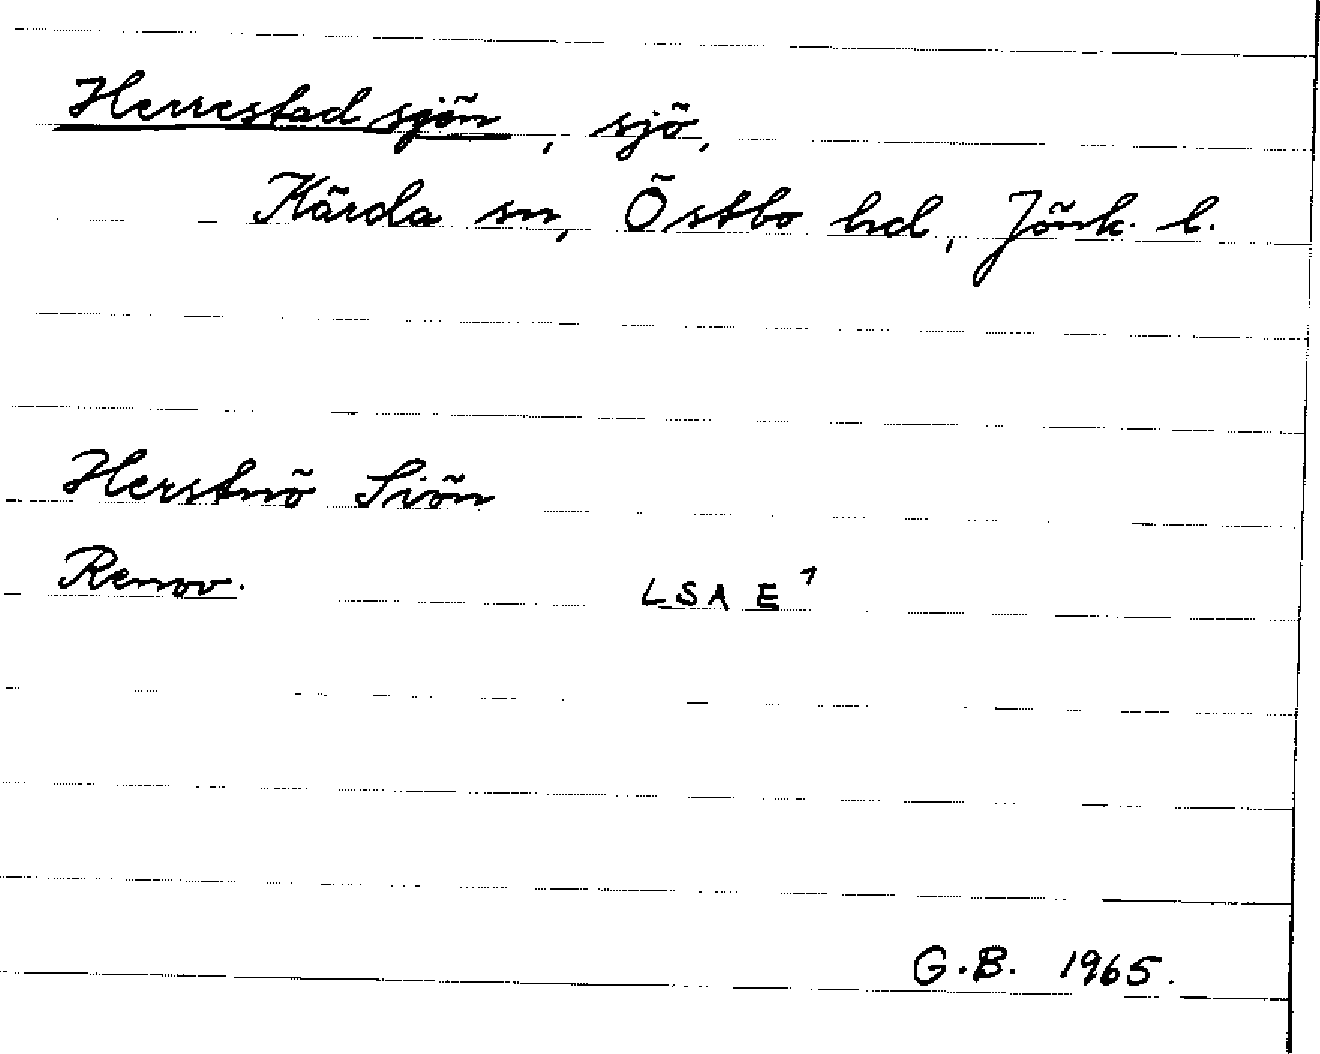 Herrestadsjön, sjö,
Kärda sn, Östbo hd, Jönk. l.
Herstnö Siön
Renov. LSA E 1
G.B. 1965.